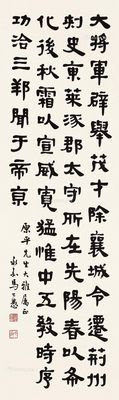 大將軍辟舉茂才除襄城令遷荊州
刺史東萊涿郡太守所在先陽春以
化後秋霜以宣威寬猛惟中五教時序
功洽三邦聞于帝京
原平先生大雅屬正
永嘉馬